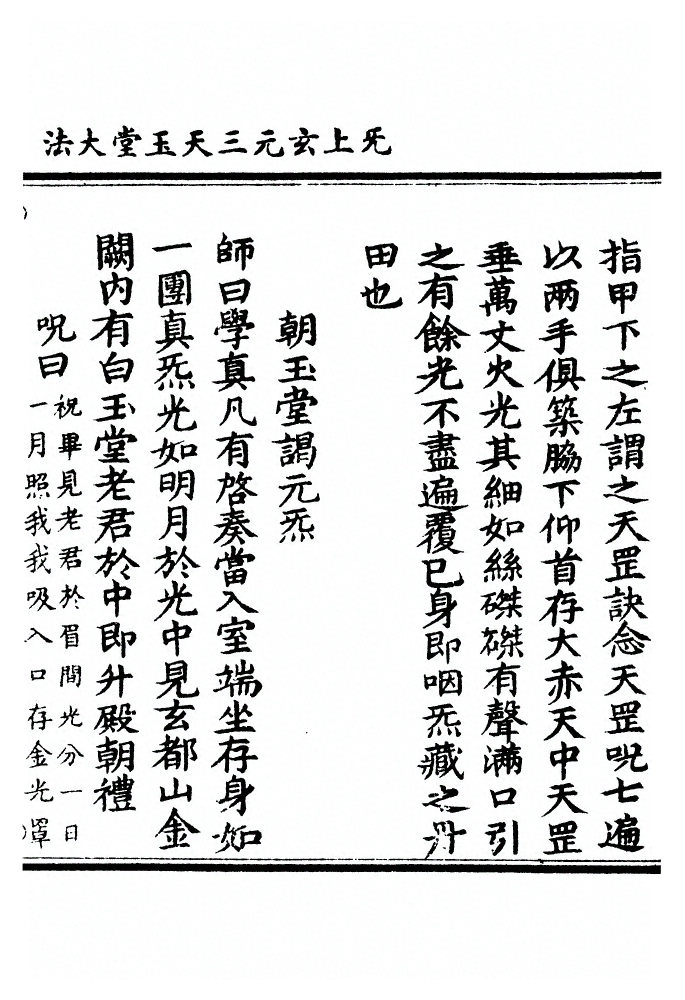 法大堂玉天三元玄上旡
指甲下之左謂之天罡訣念天罡呪七遍
以兩手俱築脇下仰首存大赤天中天罡
垂萬丈火光其細如絲磔磔有聲滿口引
之有餘光不盡遍覆已身即咽炁藏之丹
田也
朝玉堂謁元炁
師曰學真凡有啓奏當入室端坐存身如
一團真炁光如明月於光中見玄都山金
闕內有白玉堂老君於中即升殿朝禮
呪曰祝畢見老君於眉間光分一日
一月照我我吸入口存金光罩